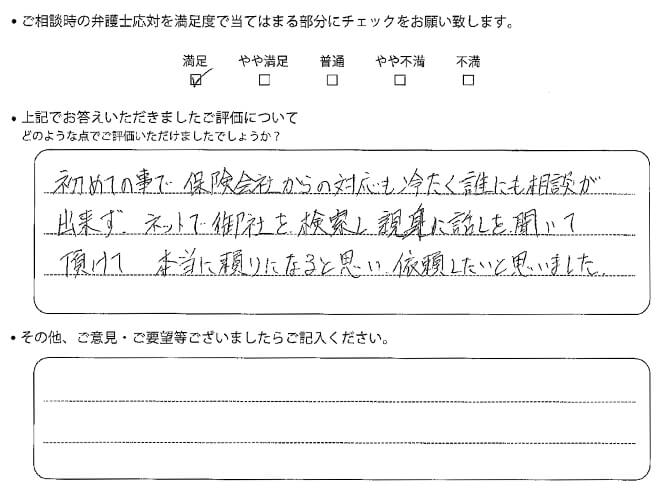 • ご相談時の弁護士応対を満足度で当てはまる部分にチェックをお願い致します。
満足 やや満足 普通 やや不満 不満
☑ □ □ □ □
• 上記でお答えいただきましたご評価について
どのような点でご評価いただけましたでしょうか？
初めての事で 保険会社からの対応も冷たく誰にも相談が
出来ず、ネットで御社を検索し親身に話しを聞いて
頂けて 本当に頼りになると思い、依頼したいと思いました。
• その他、ご意見・ご要望等ございましたらご記入ください。